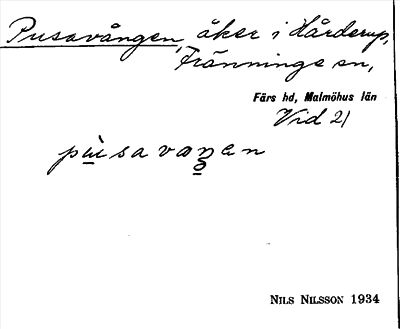 Pusavången, åker i Hårderup,
Tränninge sn,
Färs hd, Malmöhus län
Vid 2/
pùsavaŋen
NILS NILSSON 1934